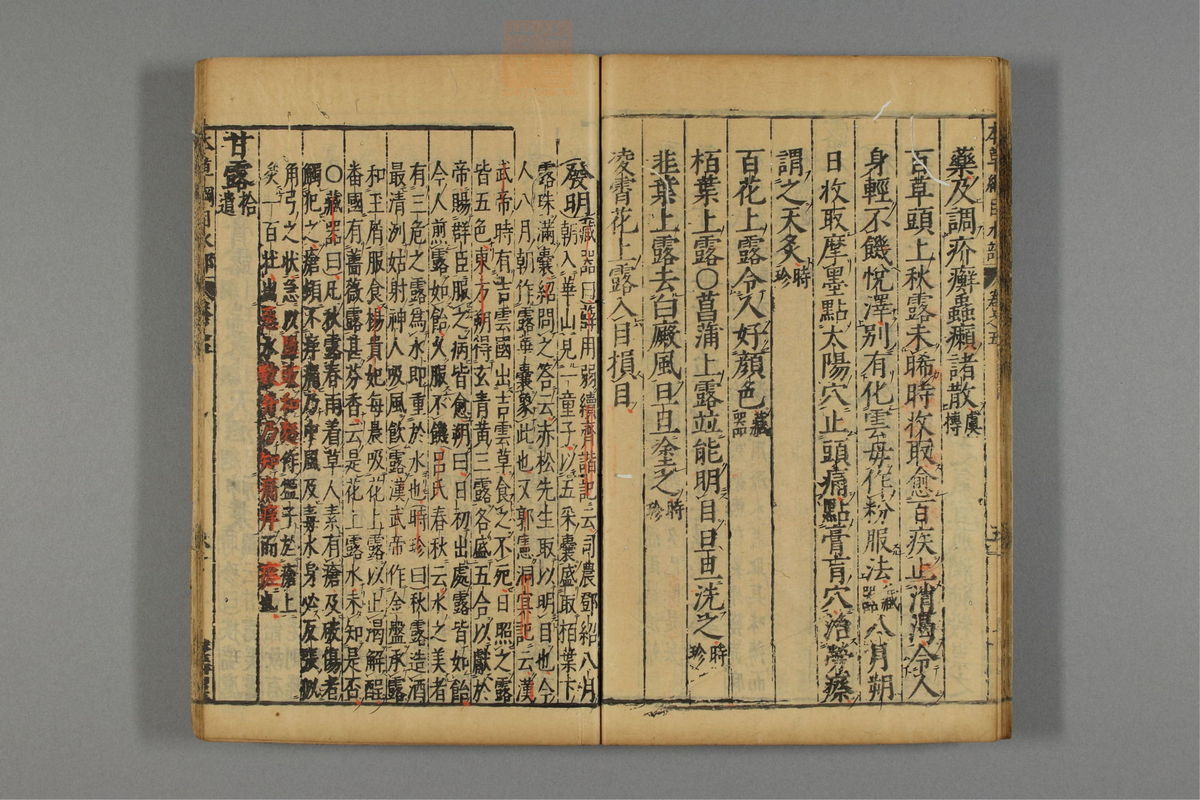 藥及調疥癬蟲癩諸散虞摶
百草頭上秋露未晞時收取愈百疾止消渴令人
身輕不饑悅澤別有化雲母作粉服法藏器八月朔
日收取摩墨點太陽穴止頭痛點膏肓穴治勞瘵
謂之天灸時珍
百花上露令人好顏色藏器
栢葉上露〇菖蒲上露並能明目旦旦洗之時珍
韭葉上露去白癜風旦旦塗之時珍
凌霄花上露入目損目
發明藏器曰薛用弱續齊諧記云司農鄧紹八月
朝入華山見一童子以五采囊盛取栢葉下
露珠滿囊紹問之荅云赤松先生取以明目也今
人八月朝作露華囊象此也又郭憲洞冥記云漢
武帝時有吉雲國出吉雲草食之不死日照之露
皆五色東方朔得玄青黃三露各盛五合以獻於
帝賜群臣服之病皆愈朔曰日初出處露皆如飴
今人煎露如飴久服不饑呂氏春秋云水之美者
有三危之露為水即重於水也時珍曰秋露造酒
最清洌姑射神人吸風飲露漢武帝作金盤承露
和玉屑服食楊貴妃每晨吸花上露以止渴解酲
番國有薔薇露甚芬香云是花上露水未知是否
〇藏器曰凡秋露春雨着草人素有瘡及破傷者
觸犯之瘡頓不痒痛乃中風及毒水身必反張似
角弓之狀急以鹽豉和麪作盌子於瘡上
灸一百壯出惡水數升乃知痛痒而瘥也
甘露拾遺